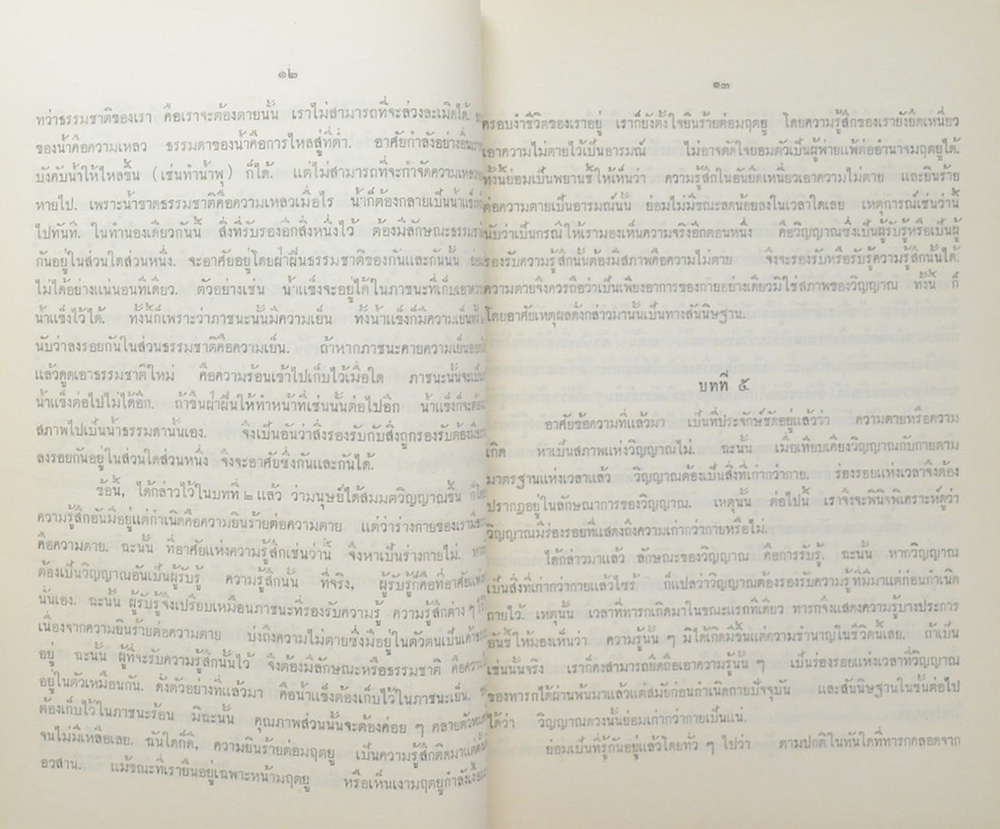 ๑๒
ทว่าธรรมชาติของเรา คือเราจะต้องตายนั้น เราไม่สามารถที่จะล่วงละเมิดได้
ของน้ำคือความเหลว ธรรมดาของน้ำคือการไหลสู่ที่ต่ำ. อาศัยกำลังอย่างอื่น
บังคับน้ำให้ไหลขึ้น (เช่นทำน้ำพุ) ก็ได้. แต่ไม่สามารถที่จะกำจัดความเหลว
หายไป. เพราะน้ำขาดธรรมชาติคือความเหลวเมื่อไร น้ำก็ต้องกลายเป็นน้ำแข็ง
ไปทันที. ในทำนองเดียวกันนี้ สิ่งที่รับรองอีกสิ่งหนึ่งไว้ ต้องมีลักษณะธรรมชาติ
กันอยู่ในส่วนใดส่วนหนึ่ง. จะอาศัยอยู่โดยฝ่าฝืนธรรมชาติของกันและกันนั้น
ไม่ได้อย่างแน่นอนทีเดียว. ตัวอย่างเช่น น้ำแข็งจะอยู่ได้ในภาชนะที่เก็บเอา
น้ำแข็งไว้ได้. ทั้งนี้ก็เพราะว่าภาชนะนั้นมีความเย็น ทั้งน้ำแข็งก็มีความเย็น
นับว่าลงรอยกันในส่วนธรรมชาติคือความเย็น. ถ้าหากภาชนะคายความเย็น
แล้วดูดเอาธรรมชาติใหม่ คือความร้อนเข้าไปเก็บไว้เมื่อใด ภาชนะนั้นจะเก็บ
น้ำแข็งต่อไปไม่ได้อีก. ถ้าขืนฝ่าฝืนให้ทำหน้าที่เช่นนั้นต่อไปอีก น้ำแข็งก็จะ
สภาพไปเป็นน้ำธรรมดานั่นเอง. จึงเป็นอันว่าสิ่งรองรับกับสิ่งถูกรองรับต้องมี
ลงรอยกันอยู่ในส่วนใดส่วนหนึ่ง จึงจะอาศัยซึ่งกันและกันได้.
ข้อนี้, ได้กล่าวไว้ในบทที่ ๒ แล้ว ว่ามนุษย์ได้สมมตวิญญาณขึ้น ก็โดย
ความรู้สึกอันมีอยู่แต่กำเนิดคือความยินร้ายต่อความตาย แต่ว่าร่างกายของเรามี
คือความตาย. ฉะนั้น ที่อาศัยแห่งความรู้สึกเช่นว่านี้ จึงหาเป็นร่างกายไม่.
ต้องเป็นวิญญาณอันเป็นผู้รับรู้ ความรู้สึกนั้น ที่จริง, ผู้รับรู้ก็คือที่อาศัยแห่ง
นั้นเอง. ฉะนั้น ผู้รับรู้จึงเปรียบเหมือนภาชนะที่รองรับความรู้ ความรู้สึกต่าง ๆ ไว้
เนื่องจากความยินร้ายต่อความตาย บ่งถึงความไม่ตายซึ่งมีอยู่ในตัวตนเป็น
อยู่ ฉะนั้น ผู้ที่จะรับความรู้สึกนั้นไว้ จึงต้องมีลักษณะหรือธรรมชาติ คือความ
อยู่ในตัวเหมือนกัน. ดังตัวอย่างที่แล้วมา คือน้ำแข็งต้องเก็บไว้ในภาชนะเย็น.
ต้องเก็บไว้ในภาชนะร้อน มิฉะนั้น คุณภาพส่วนนั้นจะต้องค่อย ๆ คลายตัว
จนไม่มีเหลือเลย. ฉันใดก็ดี, ความยินร้ายต่อมฤตยู เป็นความรู้สึกติดมาแต่
อวสาน. แม้ขณะที่เรายืนอยู่เฉพาะหน้ามฤตยู หรือเห็นเงามฤตยูกำลัง
๑๓
ครอบงำชีวิตของเราอยู่ เราก็ยังตั้งใจยินร้ายต่อมฤตยู โดยความรู้สึกของเรายังยึดเหนี่ยว
เอาความไม่ตายไว้เป็นอารมณ์ ไม่อาจตัดใจยอมตัวเป็นผู้พ่ายแพ้ต่ออำนาจมฤตยูได้.
ทั้งนี้ย่อมเป็นพยานชี้ให้เห็นว่า ความรู้สึกในอันยึดเหนี่ยวเอาความไม่ตาย และยินร้าย
ต่อความตายเป็นอารมณ์นั้น ย่อมไม่มีขณะลดน้อยลงในเวลาใดเลย เหตุการณ์เช่นว่านี้
นับว่าเป็นกรณีให้เรามองเห็นความจริงอีกตอนหนึ่ง คือวิญญาณซึ่งเป็นผู้รับรู้หรือเป็นผู้
รองรับความรู้สึกนั้นต้องมีสภาพคือความไม่ตาย จึงจะรองรับหรือรับรู้ความรู้สึกนั้นได้.
ความตายจึงควรถือว่าเป็นเพียงอาการของกายอย่างเดียวมิใช่สภาพของวิญญาณ ทั้งนี้ ก็
โดยอาศัยเหตุผลดังกล่าวมานั้นเป็นทางสันนิษฐาน.
บทที่ ๕
อาศัยข้อความที่แล้วมา เป็นที่ประจักษ์ชัดอยู่แล้วว่า ความตายหรือความ
เกิด หาเป็นสภาพแห่งวิญญาณไม่. ฉะนั้น เมื่อเทียบเคียงวิญญาณกับกายตาม
มาตรฐานแห่งเวลาแล้ว วิญญาณต้องเป็นสิ่งที่เก่ากว่ากาย. ร่องรอยแห่งเวลาจึงต้อง
ปรากฏอยู่ในลักษณาการของวิญญาณ. เหตุนั้น ต่อไปนี้ เราจึงจะพินิจพิเคราะห์ดูว่า
วิญญาณมีร่องรอยที่แสดงถึงความเก่ากว่ากายหรือไม่.
ได้กล่าวมาแล้ว ลักษณะของวิญญาณ คือการรับรู้. ฉะนั้น หากวิญญาณ
เป็นสิ่งที่เก่ากว่ากายแล้วไซร้ ก็แปลว่าวิญญาณต้องรองรับความรู้ที่มีมาแต่ก่อนกำเนิด
กายไว้. เหตุนั้น เวลาที่ทารกเกิดมาในขณะแรกทีเดียว ทารกจึงแสดงความรู้บางประการ
อันชี้ให้มองเห็นว่า ความรู้นั้น ๆ มิได้เกิดมีขึ้นแต่ความชำนาญในชีวิตนี้เลย. ถ้าเป็น
เช่นนั้นจริง เราก็คงสามารถยึดถือเอาความรู้นั้น ๆ เป็นร่องรอยแห่งเวลาที่วิญญาณ
ของทารกได้ผ่านพ้นมาแล้วแต่สมัยก่อนกำเนิดกายปัจจุบัน และสันนิษฐานในขั้นต่อไป
ได้ว่า วิญญาณดวงนั้นย่อมเก่ากว่ากายเป็นแน่.
ย่อมเป็นที่รู้กันอยู่แล้วโดยทั่ว ๆ ไปว่า ตามปกติในทันใดที่ทารกคลอดจาก